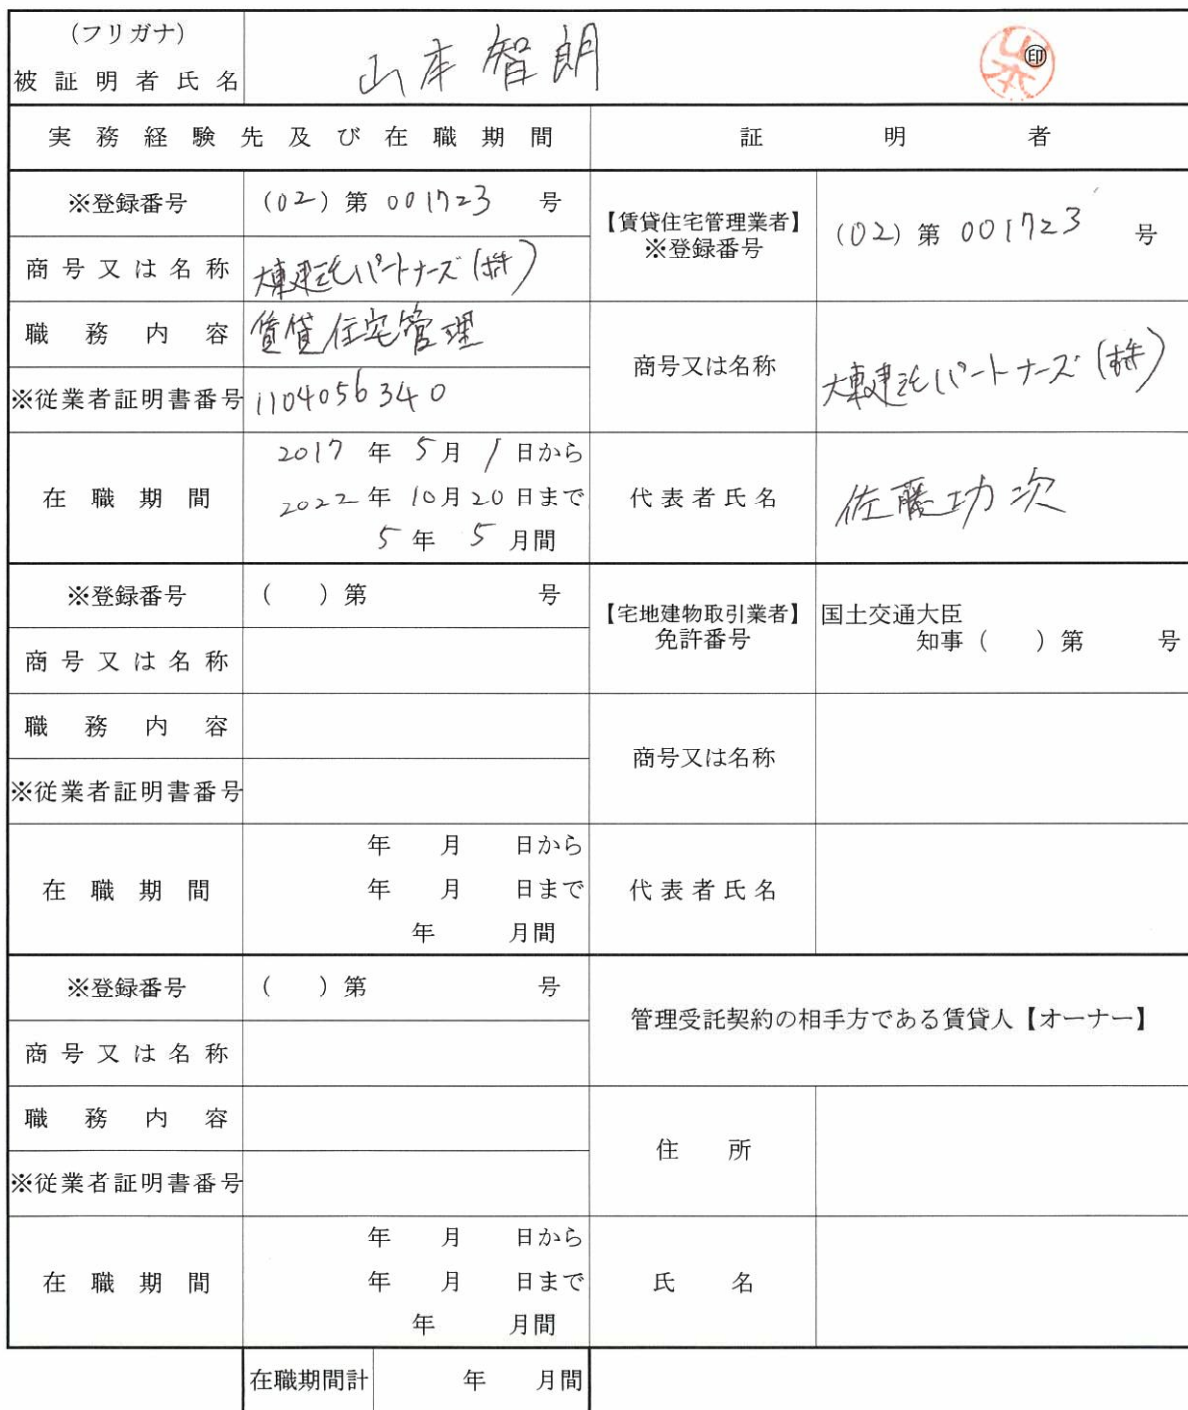 (フリガナ)
被証明者氏名 山本智朗 山本 ㊞
実務経験先及び在職期間 証明者
※登録番号 (02)第001723号 【賃貸住宅管理業者】 ※登録番号 (02)第001723号
商号又は名称 大東建託パートナーズ(株)
職務内容 賃貸住宅管理 商号又は名称 大東建託パートナーズ(株)
※従業者証明書番号 1104056340
在職期間 2017年5月1日から
2022年10月20日まで 代表者氏名 佐藤功次
5年5月間
※登録番号 ( )第 号 【宅地建物取引業者】 免許番号 国土交通大臣
知事( )第 号
商号又は名称
職務内容 商号又は名称
※従業者証明書番号
在職期間 年 月 日から
年 月 日まで 代表者氏名
年 月間
※登録番号 ( )第 号 管理受託契約の相手方である賃貸人【オーナー】
商号又は名称
職務内容 住所
※従業者証明書番号
在職期間 年 月 日から
年 月 日まで 氏名
年 月間
在職期間計 年 月間